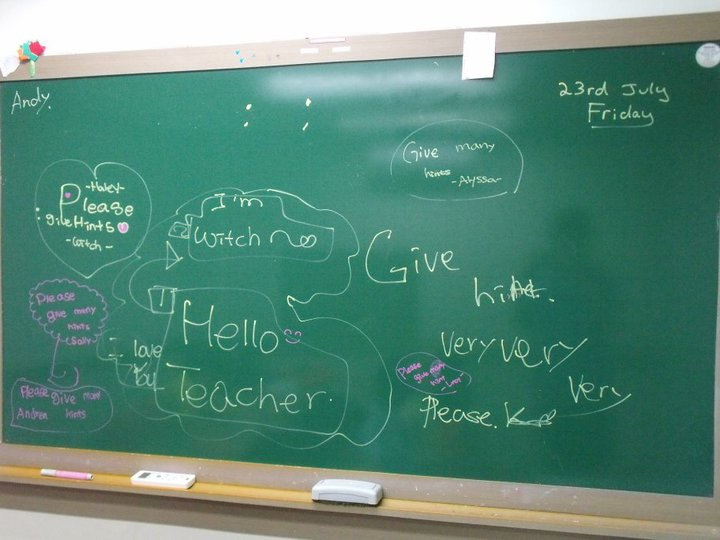 Andy.
23rd July
Friday
Give many
hints
-Alyssa-
-Haley-
Please
give Hints
-witch-
I'm
witch
Give
hint.
very very
very
Please.
Hello
Teacher.
I love
you
Please
give many
hints
Sally
Please give many
Andrea hints
Please
give many
hint